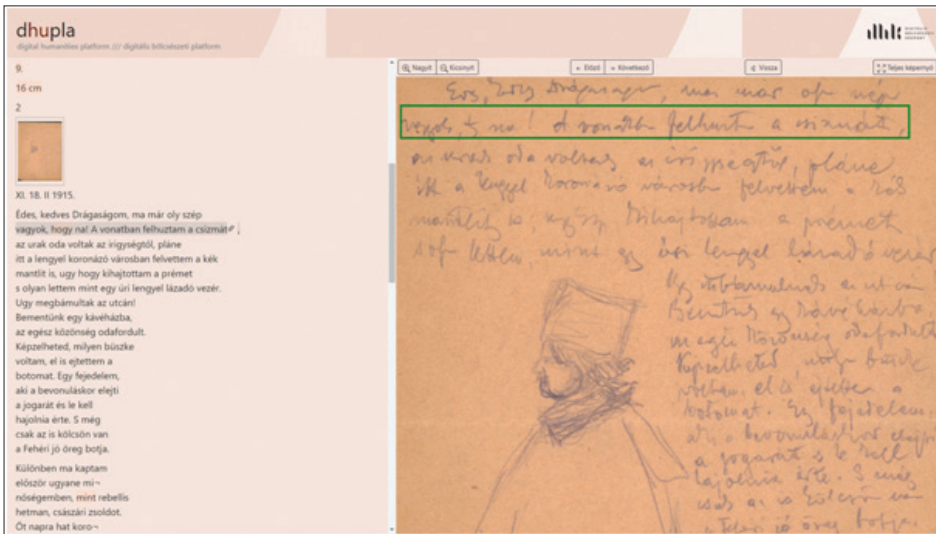 dhupla
digital humanities platform /// digitális bölcsészeti platform
dhk
9.
16 cm
2
XI. 18. II 1915.
Édes, kedves Drágaságom, ma már oly szép
vagyok, hogy na! A vonatban felhuztam a csizmát
az urak oda voltak az irigységtől, pláne
itt a lengyel koronázó városban felvettem a kék
mantlit is, ugy hogy kihajtottam a prémet
s olyan lettem mint egy úri lengyel lázadó vezér.
Ugy megbámultak az utcán!
Bementünk egy kávéházba,
az egész közönség odafordult.
Képzelheted, milyen büszke
voltam, el is ejtettem a
botomat. Egy fejedelem,
aki a bevonuláskor elejti
a jogarát és le kell
hajolnia érte. S még
csak az is kölcsön van
a Fehéri jó öreg botja.
Különben ma kaptam
először ugyane mi¬
nőségemben, mint rebellis
hetman, császári zsoldot.
Öt napra hat koro¬
Nagyít
Kicsinyít
← Előző
→ Következő
Vissza
Teljes képernyő
Édes, Drágaságom, ma már oly szép
vagyok, hogy na! A vonatban felhuztam a csizmát,
az urak oda voltak az irigységtől, pláne
itt a lengyel koronázó városban felvettem a kék
mantlit is, kihajtottam a prémet
s olyan lettem mint egy úri lengyel lázadó vezér
Ugy megbámultak az utcán
Bementünk egy kávéházba,
az egész közönség odafordult
Képzelheted, milyen büszke
voltam, el is ejtettem a
botomat. Egy fejedelem,
aki a bevonuláskor elejti
a jogarát s le kell
hajolnia érte. S még
csak az is kölcsön van
a Fehéri jó öreg botja.